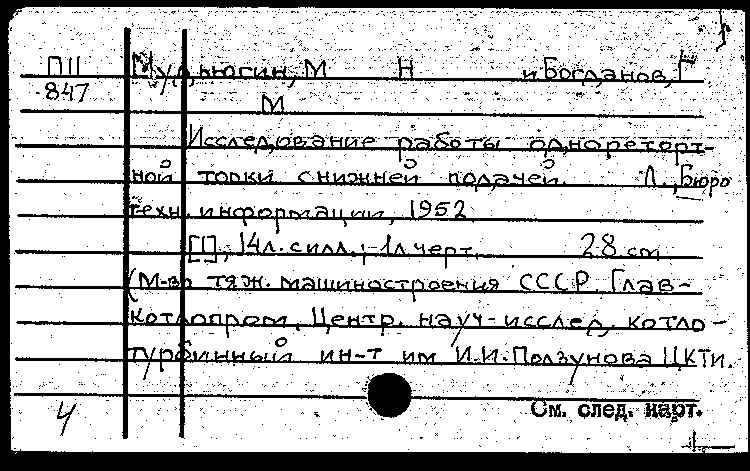 ПII Мудьюгин, М Н и Богданов, Г
847 М
Исследование работы однореторт-
ной топки с нижней подачей. Л., Бюро
техн. информации, 1952
[I], 14л. с илл.; 1л черт. 28 cm
(М-во тяж. машиностроения СССР. Глав-
котлопром. Центр. науч-исслед. котло-
турбинный ин-т им И.И. Ползунова ЦКТИ.
4 См. след. карт.